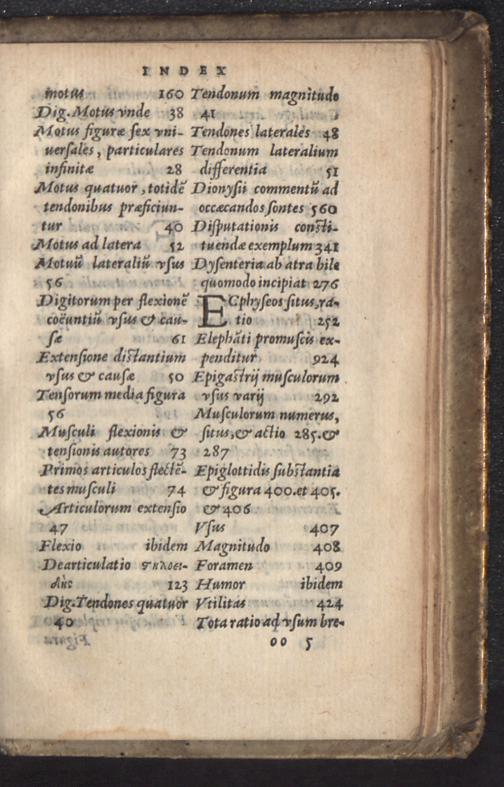 INDEX
motus 160
Dig. Motus vnde 38
Motus figuræ sex vni-
uersales, particulares
infinitæ 28
Motus quatuor, totidē
tendonibus præficiun-
tur 40
Motus ad latera 52
Motuū lateraliū vsus
56
Digitorum per flexionē
coëuntiū vsus & cau-
sæ 61
Extensione distantium
vsus & causæ 50
Tensorum media figura
56
Musculi flexionis &
tensionis autores 73
Primos articulos flectē-
tes musculi 74
Articulorum extensio
47
Flexio ibidem
Dearticulatio
123
Dig. Tendones quatuor
40
Tendonum magnitudo
41
Tendones laterales 48
Tendonum lateralium
differentia 51
Dionysii commentū ad
occæcandos fontes 560
Disputationis consti-
tuendæ exemplum 341
Dysenteria ab atra bile
quomodo incipiat 276
ECphyseos situs, ra-
tio 252
Elephāti promuscis ex-
penditur 924
Epigastrij musculorum
vsus varij 292
Musculorum numerus,
situs, & actio 285. &
287
Epiglottidis substantia
& figura 400. et 405.
& 406
Vsus 407
Magnitudo 408
Foramen 409
Humor ibidem
Vtilitas 424
Tota ratio ad vsum bre-
oo 5